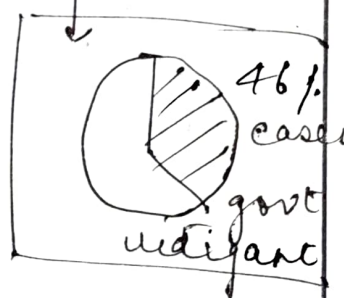 46%
cases
govt
litigant